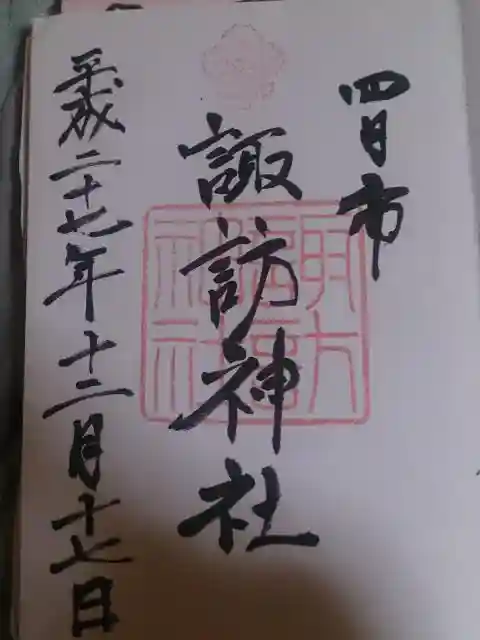 四日市
諏訪神社
平成二十七年十二月十七日